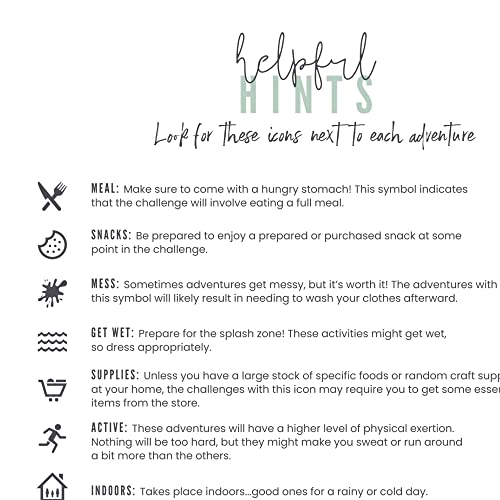 helpful
HINTS
Look for these icons next to each adventure
MEAL: Make sure to come with a hungry stomach! This symbol indicates
that the challenge will involve eating a full meal.
SNACKS: Be prepared to enjoy a prepared or purchased snack at some
point in the challenge.
MESS: Sometimes adventures get messy, but it's worth it! The adventures with
this symbol will likely result in needing to wash your clothes afterward.
GET WET: Prepare for the splash zone! These activities might get wet,
so dress appropriately.
SUPPLIES: Unless you have a large stock of specific foods or random craft
at your home, the challenges with this icon may require you to get some
items from the store.
ACTIVE: These adventures will have a higher level of physical exertion.
Nothing will be too hard, but they might make you sweat or run around
a bit more than the others.
INDOORS: Takes place indoors...good ones for a rainy or cold day.